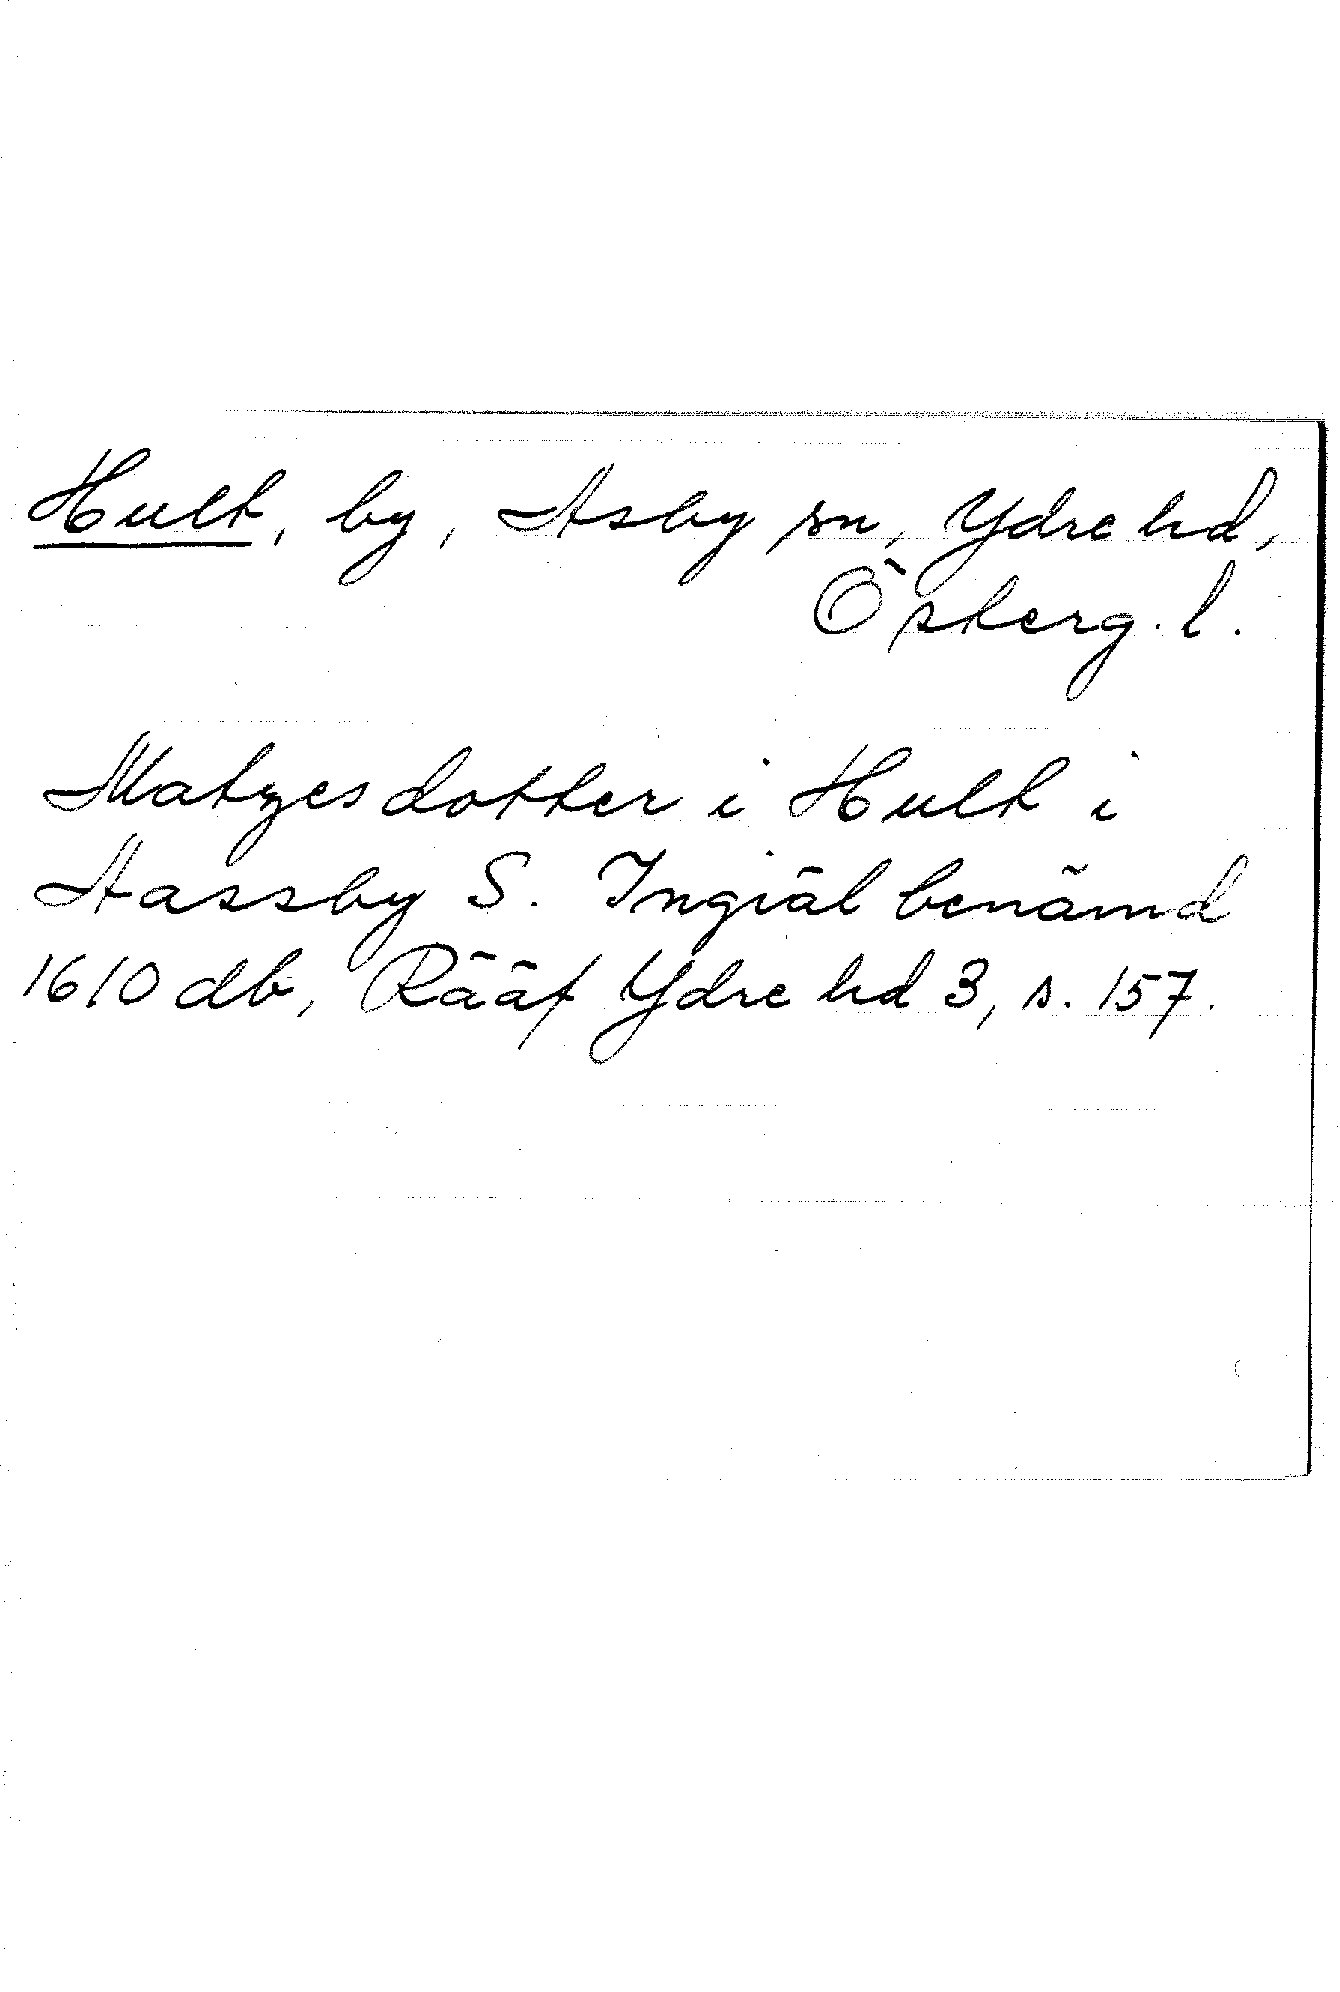 Hult, by, Asby sn, Ydre hd,
Österg. l.
Matzes dotter i Hult i
Aassby S. Ingiäl benämd
1610 db, Rääf Ydre hd 3, s. 157.